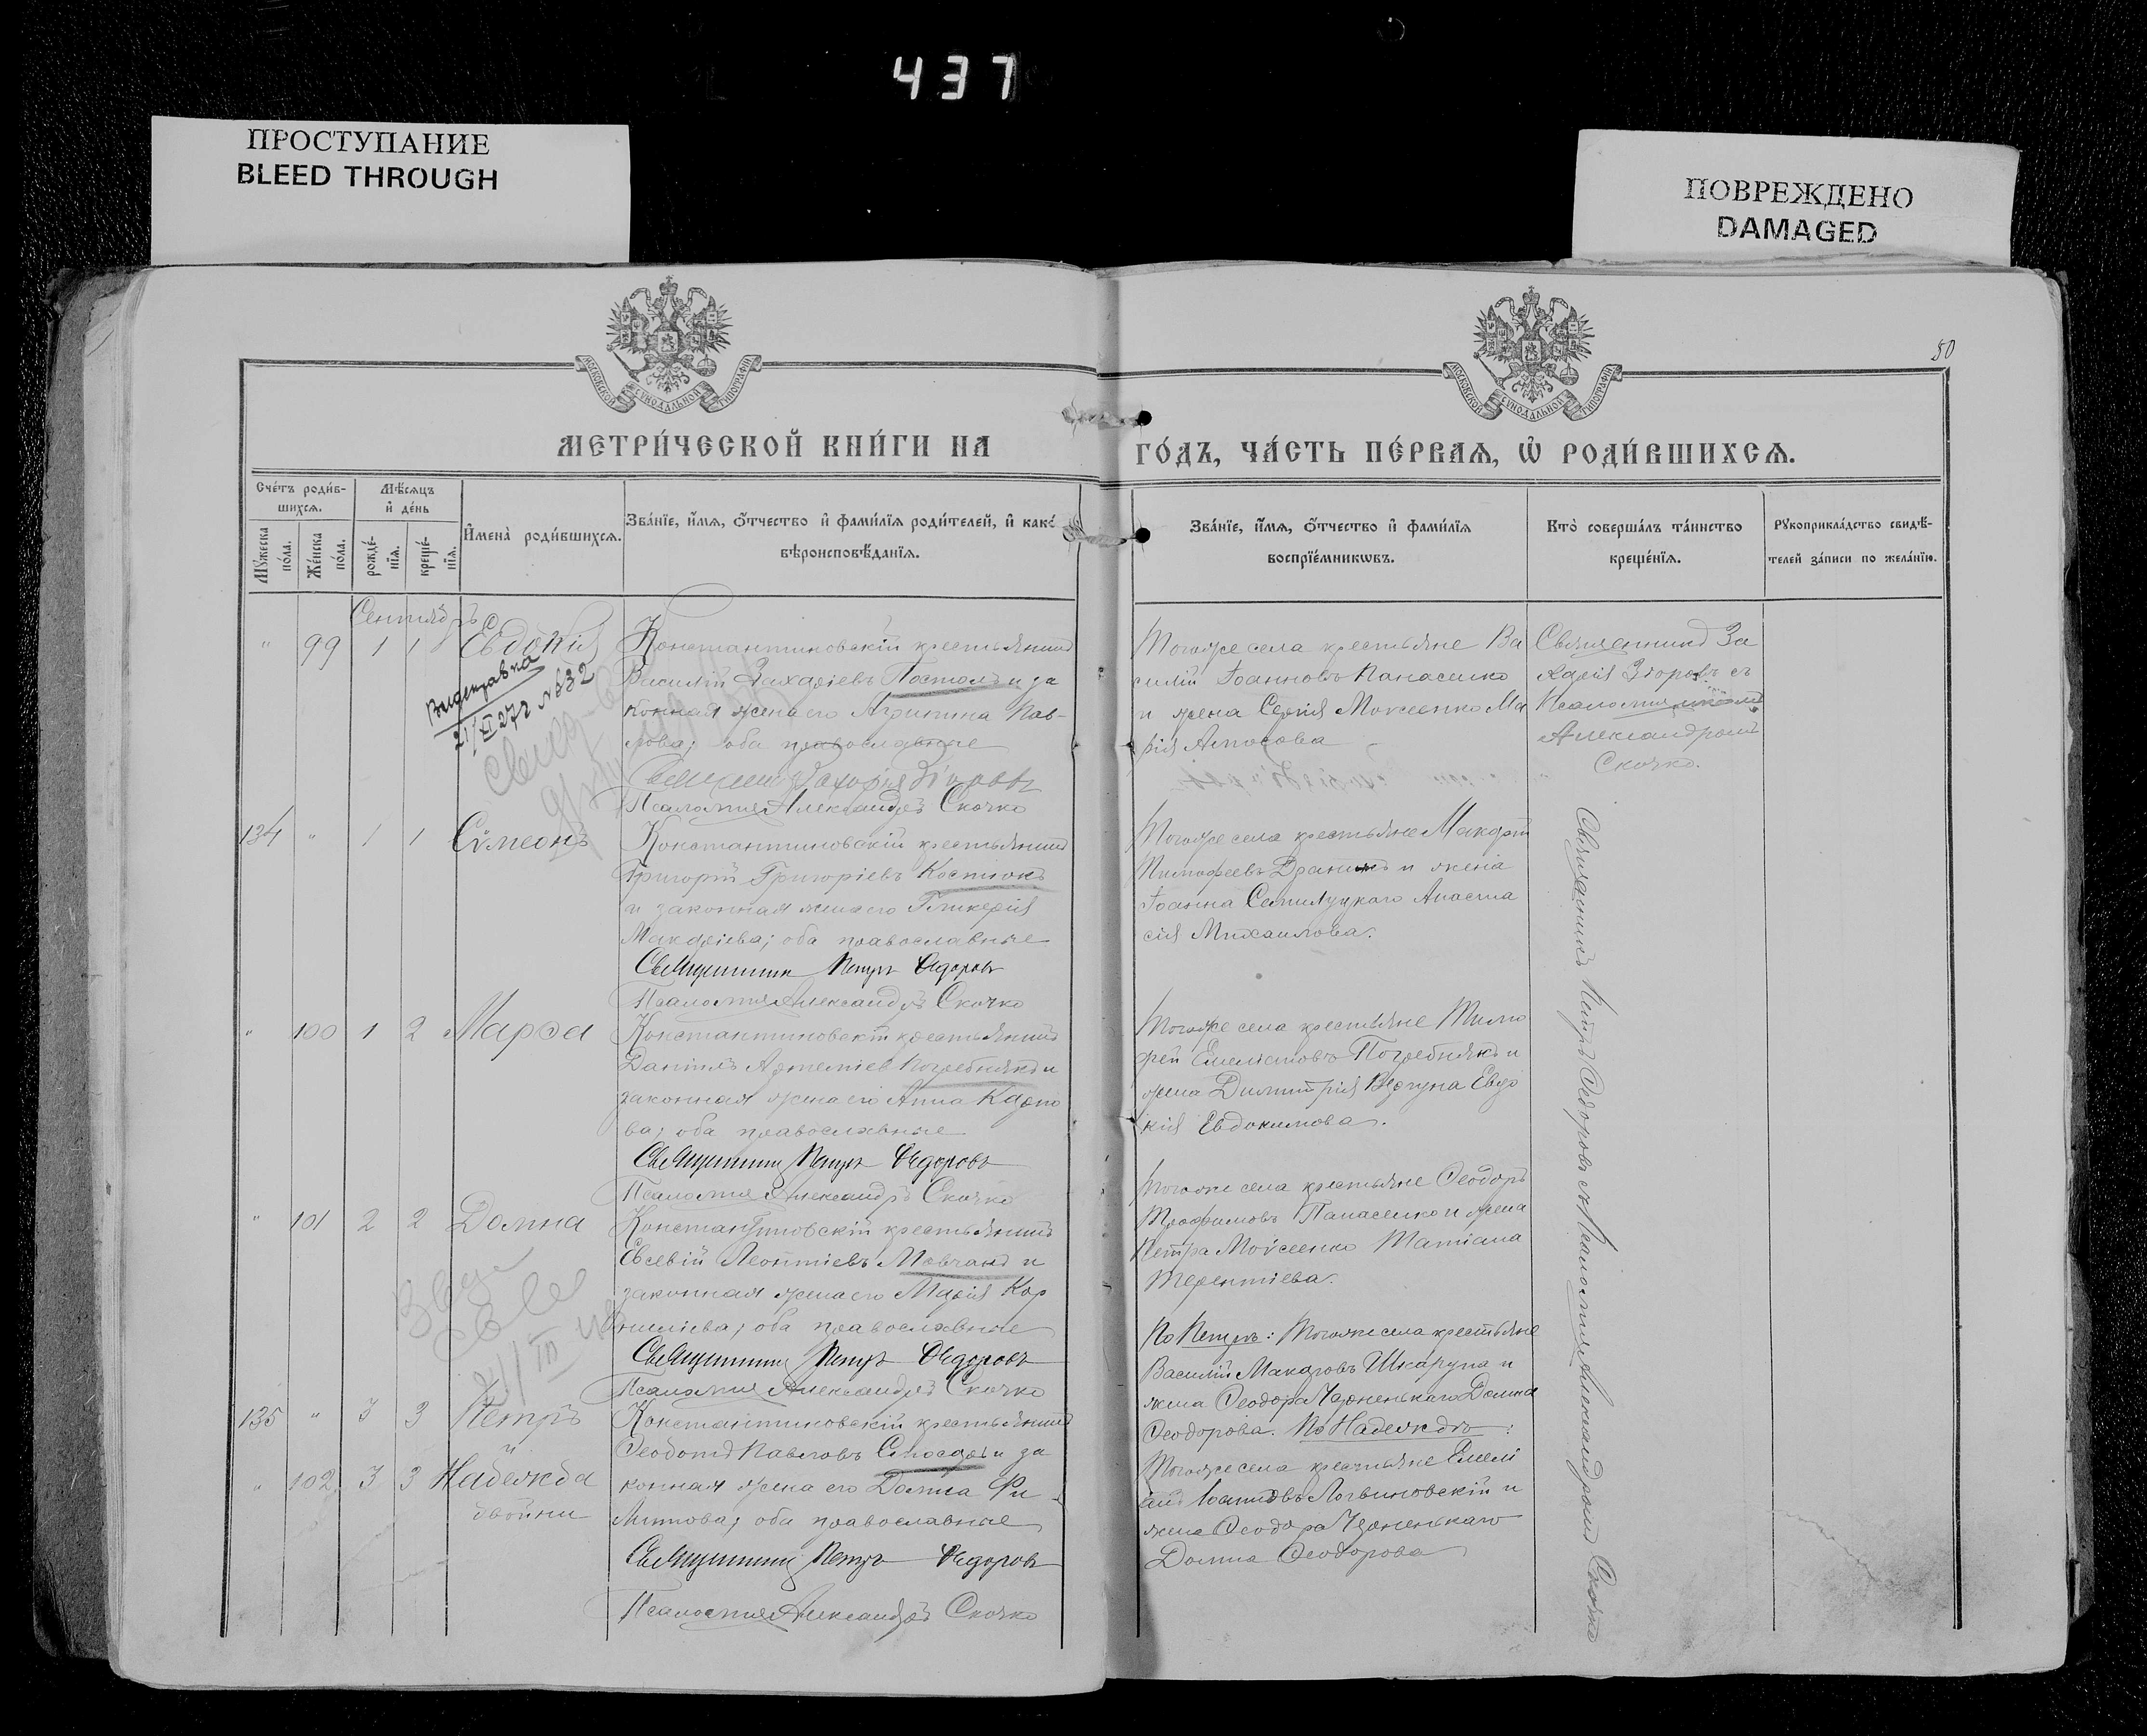 437
ПРОСТУПАНИЕ
BLEED THROUGH
ПОВРЕЖДЕНО
DAMAGED
50
МОСКОВСКОЙ СУНОДАЛЬНОЙ ТИПОГРАФІИ
МОСКОВСКОЙ СУНОДАЛЬНОЙ ТИПОГРАФІИ
МЕТРИ́ЧЕСКОЙ КНИ́ГИ НА
ГО́ДЪ, ЧА́СТЬ ПЕ́РВАѦ, Ѡ РОДИ́ВШИХСѦ.
Сче́тъ роди́в-
шихсѧ.
Мꙋ́жеска
по́ла.
Же́нска
по́ла.
Мѣ́сѧцъ
и҆ де́нь
рожде́-
нїѧ.
креще́-
нїѧ.
И҆мена̀ роди́вшихсѧ.
Зва́нїе, и҆́мѧ, ѻ҆́тчество и҆ фами́лїѧ роди́телей, и҆ како́
вѣроисповѣ́данїѧ.
Зва́нїе, и҆́мѧ, ѻ҆́тчество и҆ фами́лїѧ
воспрїе́мникѡвъ.
Кто̀ соверша́лъ та́инство
креще́нїѧ.
Рꙋкоприкла́дство свидѣ́-
телей за́писи по жела́нїю.
Сентябрь
" 99 1 1 Евдокія
Константиновскій крестьянинъ
Василій Захаріевъ Постолъ и за
конная жена его Агрипина Пав-
лова; оба православные
Псаломщ Александръ Скочко
Тогоже села крестьяне Ва
силій Іоанновъ Панасенко
и жена Сергія Моисеенко Ма
рія
Священникъ За
харія Згоровъ съ
Псаломщикомъ
Александромъ
Скочко.
134 " 1 1 Сѵмеонъ
Константиновскій крестьянинъ
Григорій Григоріевъ Костюкъ
и законная жена его Гликерія
Макаріева; оба православные
Священникъ Петръ Ѳедоровъ
Псаломщ Александръ Скочко
Тогоже села крестьяне Макарій
Тимофеевъ и жена
Іоанна Анаста
сія Михаилова.
" 100 1 2 Марѳа
Константиновскій крестьянинъ
Даніилъ Артеміев Погребнякъ и
законная жена его Анна Карпо
ва; оба православные
Священникъ Петръ Ѳедоровъ
Псаломщ Александръ Скочко
Тогоже села крестьяне Тимо
фей Погребнякъ и
жена Димитрія Вергуна Евдо
кія Евдокимова.
" 101 2 2 Домна
Константиновскій крестьянинъ
Евсевій Леонтіевъ Мовчанъ и
законная жена его Марія Кор
ниліева; оба православные
Священникъ Петръ Ѳедоровъ
Псаломщ Александръ Скочко
Тогоже села крестьяне Ѳеодоръ
Трофимовъ Панасенко и жена
Петра Моисеенко Татіана
Терентіева.
135 " 3 3 Петръ
и
" 102 3 3 Надежда
двойни
Константиновскій крестьянинъ
Ѳеодотъ Павловъ и за
конная жена его Домна Фи
липпова; оба православные
Священникъ Петръ Ѳедоровъ
Псаломщ Александръ Скочко
По Петръ: Тогоже села крестьяне
Василій Макаровъ Шкарупа и
жена Ѳеодора Чорненькаго Домна
Ѳеодорова. По Надеждъ:
Тогоже села крестьяне Емелі
анъ Іоанновъ Логвиновскій и
жена Ѳеодора Чорненькаго
Домна Ѳеодорова
Священникъ Петръ Ѳедоровъ съ Псаломщ Александромъ Скочко